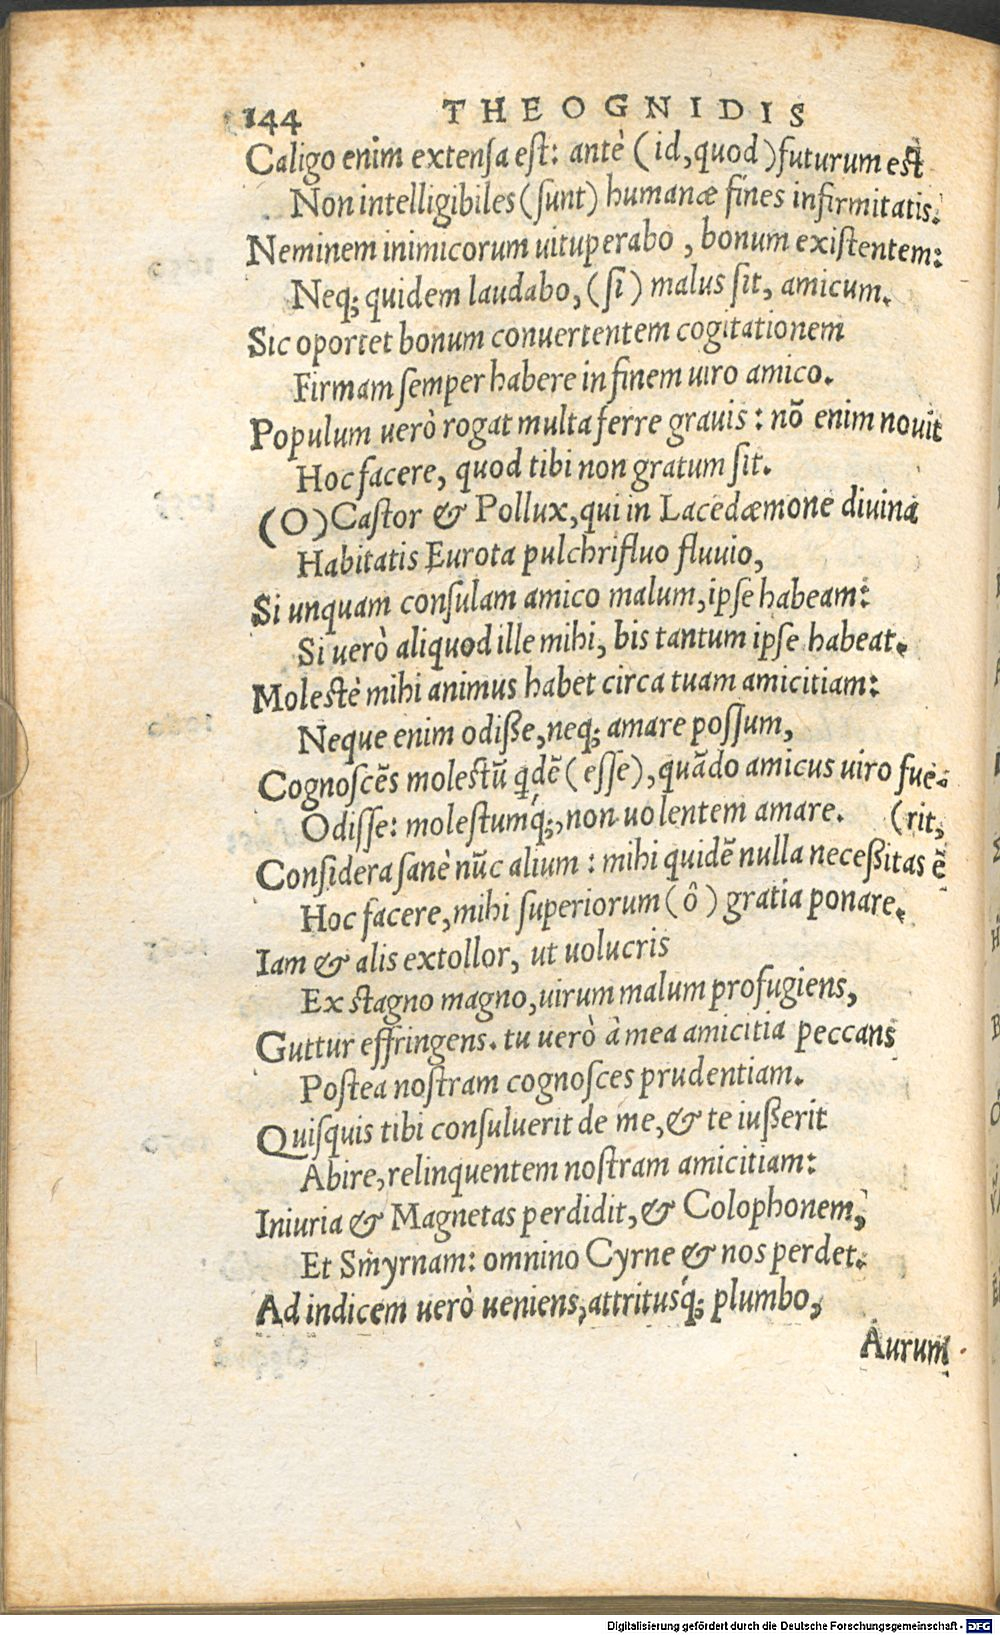 144 THEOGNIDIS
Caligo enim extensa est: antè (id, quod) futurum est
Non intelligibiles (sunt) humanæ fines infirmitatis.
Neminem inimicorum uituperabo, bonum existentem:
Neq; quidem laudabo, (si) malus sit, amicum.
Sic oportet bonum conuertentem cogitationem
Firmam semper habere in finem uiro amico.
Populum uerò rogat multa ferre grauis: nõ enim nouit
Hoc facere, quod tibi non gratum sit.
(O) Castor & Pollux, qui in Lacedæmone diuina
Habitatis Eurota pulchrifluo fluuio,
Si unquam consulam amico malum, ipse habeam:
Si uerò aliquod ille mihi, bis tantum ipse habeat.
Molestè mihi animus habet circa tuam amicitiam:
Neque enim odiße, neq; amare possum,
Cognoscẽs molestũ qdẽ (esse), quãdo amicus uiro fue-
Odisse: molestumq́;, non uolentem amare. (rit,
Considera sanè nũc alium: mihi quidẽ nulla neceßitas ẽ
Hoc facere, mihi superiorum (ô) gratia ponare.
Iam & alis extollor, ut uolucris
Ex stagno magno, uirum malum profugiens,
Guttur effringens. tu uerò à mea amicitia peccans
Postea nostram cognosces prudentiam.
Quisquis tibi consuluerit de me, & te iußerit
Abire, relinquentem nostram amicitiam:
Iniuria & Magnetas perdidit, & Colophonem,
Et Smyrnam: omnino Cyrne & nos perdet.
Ad indicem uerò ueniens, attritusq́; plumbo,
Aurum
Digitalisierung gefördert durch die Deutsche Forschungsgemeinschaft - DFG